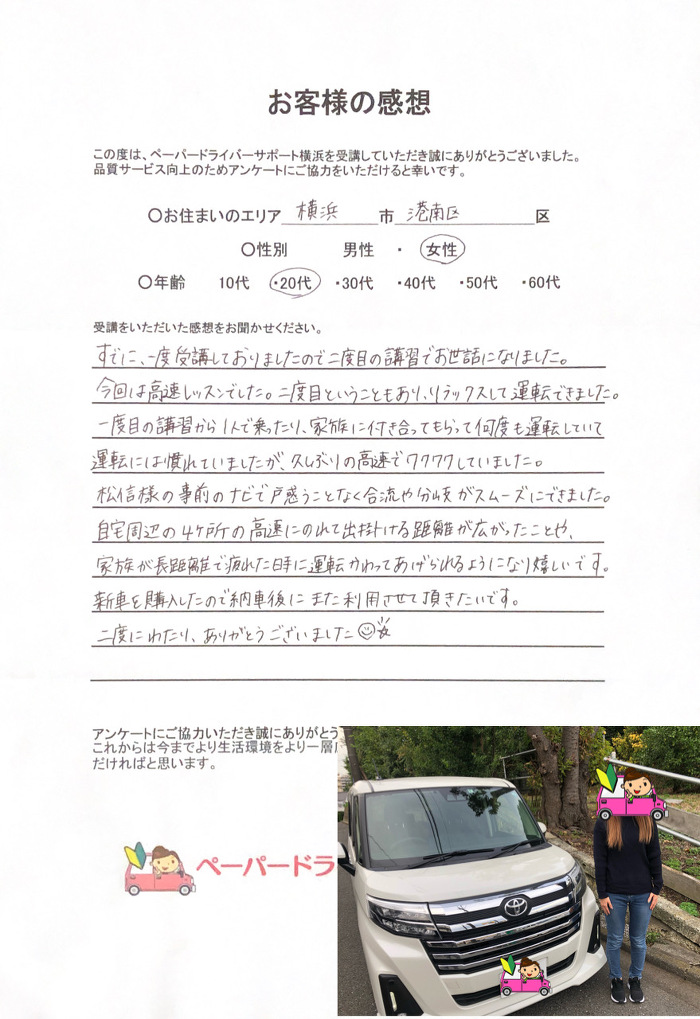 お客様の感想
この度は、ペーパードライバーサポート横浜を受講していただき誠にありがとうございました。
品質サービス向上のためアンケートにご協力をいただけると幸いです。
〇お住まいのエリア 横浜 市 港南区 区
〇性別 男性 ・ 女性
〇年齢 10代 ・20代 ・30代 ・40代 ・50代 ・60代
受講をいただいた感想をお聞かせください。
すでに、一度受講しておりましたので二度目の講習でお世話になりました。
今回は高速レッスンでした。二度目ということもあり、リラックスして運転できました。
一度目の講習から1人で乗ったり、家族に付き合ってもらって何度も運転していて
運転には慣れていましたが、久しぶりの高速でワクワクしていました。
松信様の事前のナビで戸惑うことなく合流や分岐がスムーズにできました。
自宅周辺の4ヶ所の高速にのれて出掛ける距離が広がったことや、
家族が長距離で疲れた時に運転かわってあげられるようになり嬉しいです。
新車を購入したので納車後にまた利用させて頂きたいです。
二度にわたり、ありがとうございました
アンケートにご協力いただき誠にありがとう
これからは今までより生活環境をより一層
だければと思います。
ペーパードラ